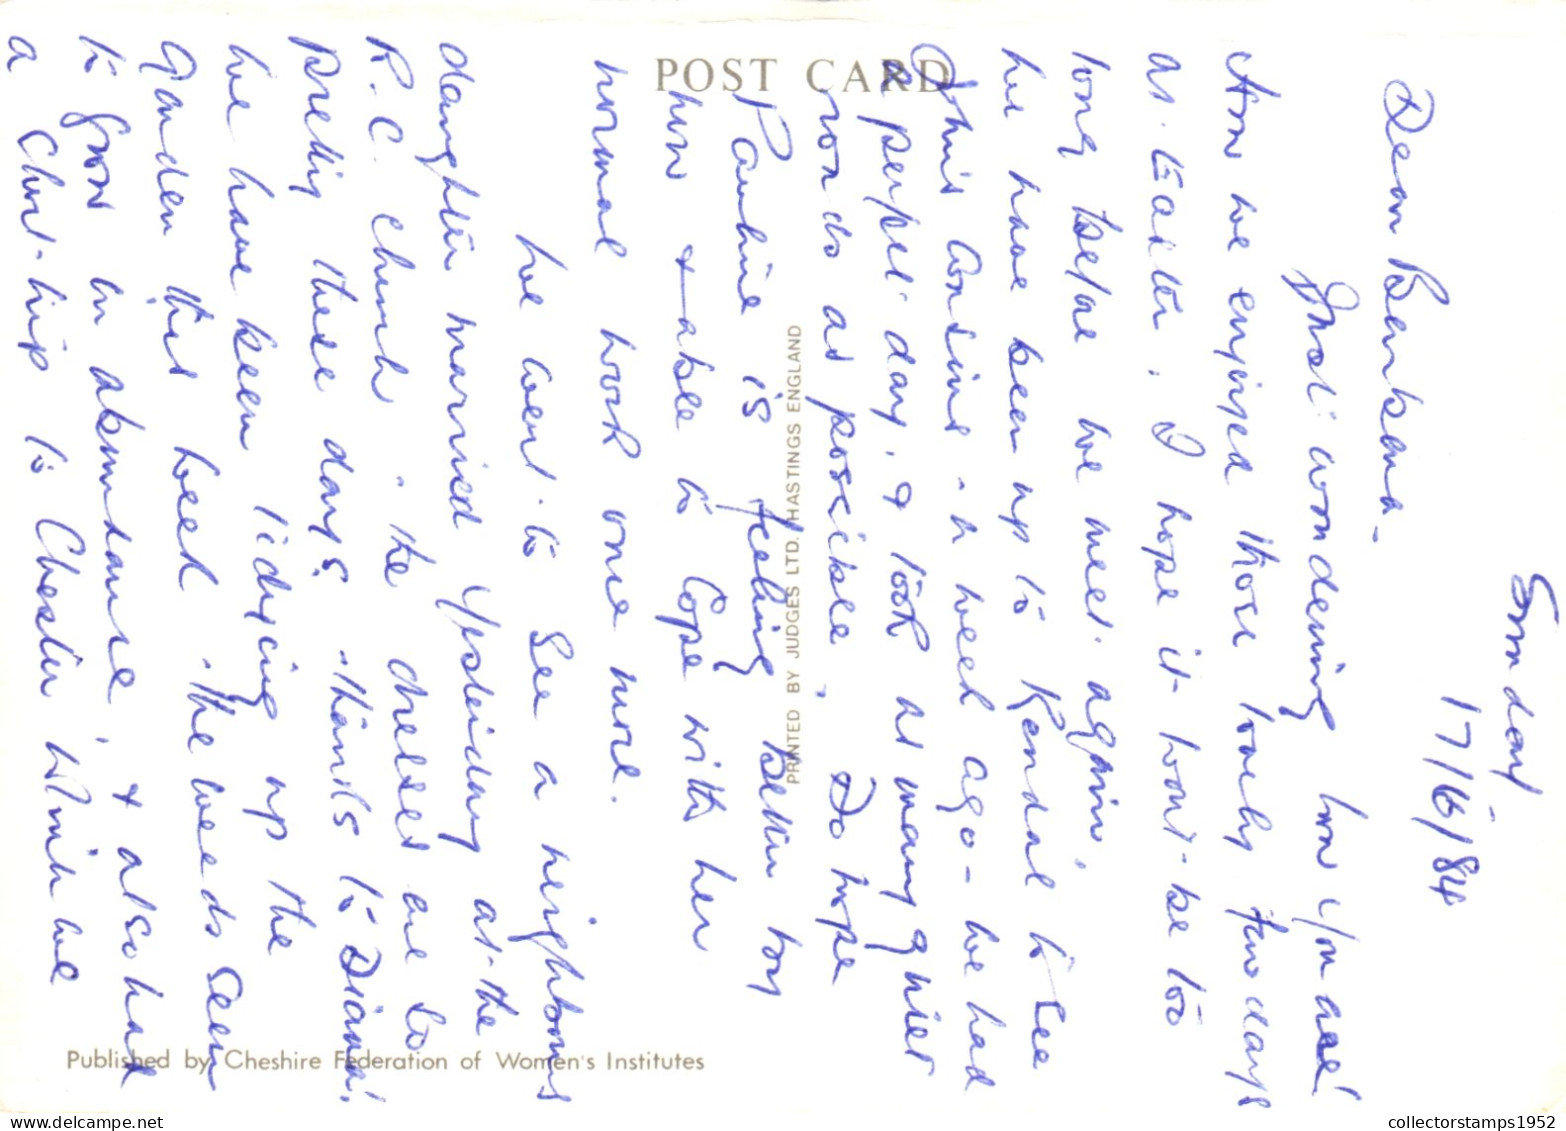 Sunday
17/6/84
Dear Barbara -
Just wondering how you are!
How we enjoyed those lovely few days
at Easter. I hope it wont be too
long before we meet again.
We have been up to Kendal to see
John's Cousins - a week ago - we had
a perfect day, & took as many quiet
roads as possible. Do hope
Pauline is feeling better by
now & able to cope with her
normal work once more.
We went to see a neighbours
daughter married yesterday at the
R.C. Church. The dresses are so
pretty these days. - thanks to Diana!
We have been tidying up the
Garden this week. The weeds seem
to grow in abundance, & also had
a short trip to Chester which we
POST CARD
PRINTED BY JUDGES LTD. HASTINGS ENGLAND
Published by Cheshire Federation of Women's Institutes
collectorstamps1952